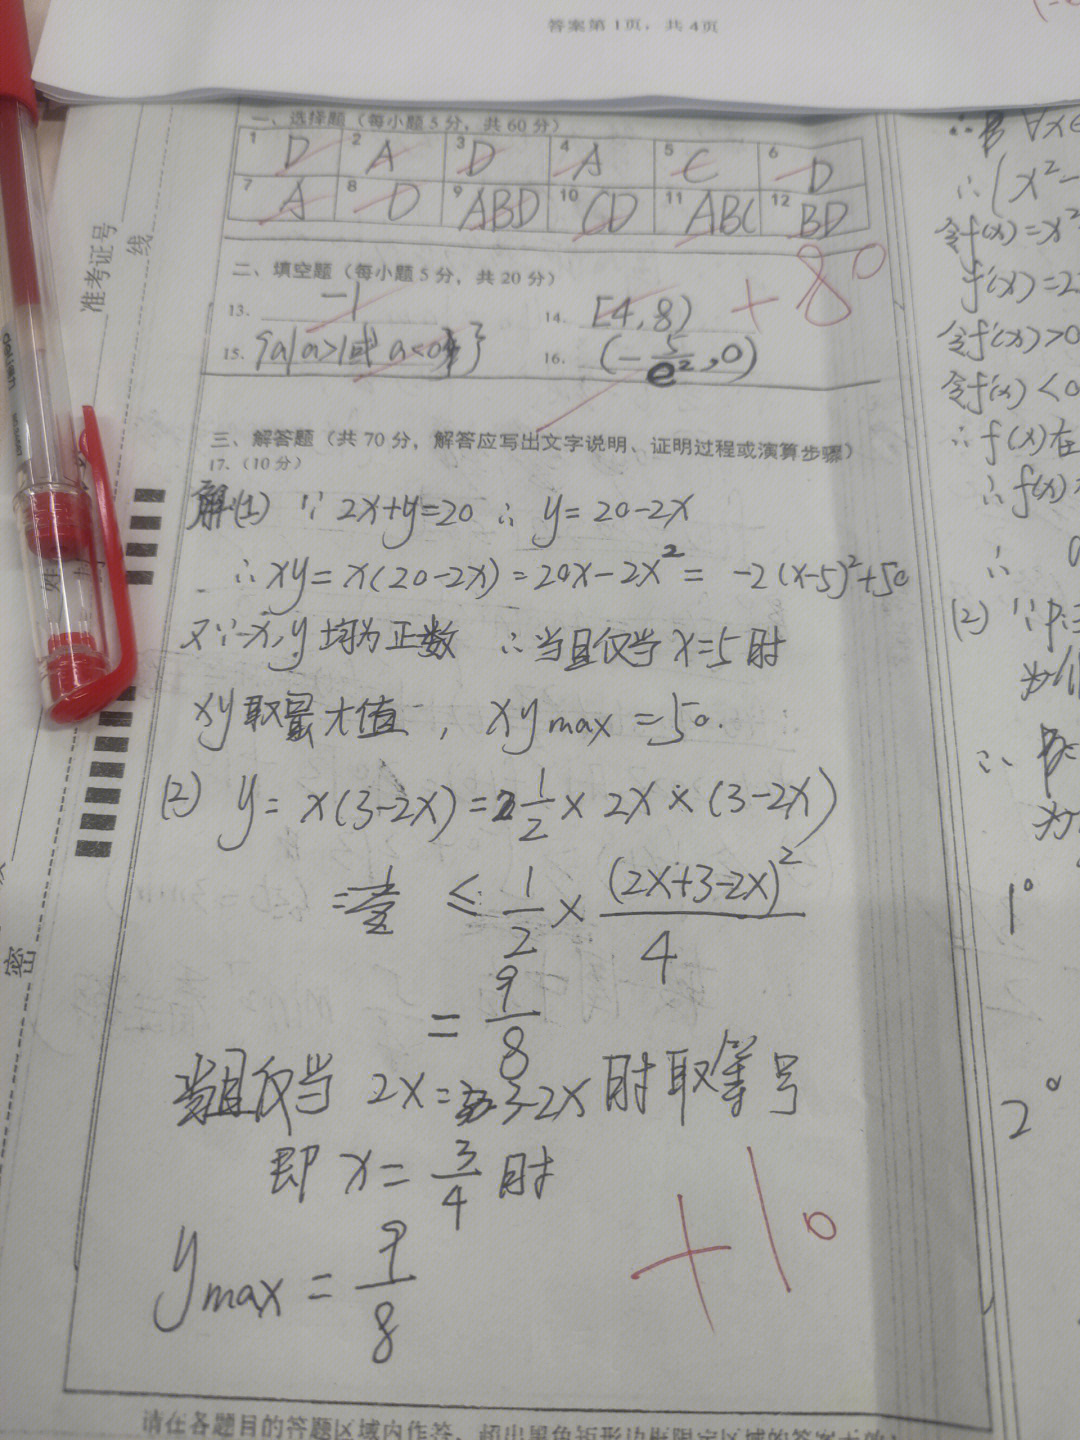 答案第1页，共4页
一、选择题（每小题5分，共60分）
1 D 2 A 3 D 4 A 5 C 6 D
7 A 8 D 9 ABD 10 CD 11 ABC 12 BD
二、填空题（每小题5分，共20分）
+80
13. -1 14. [4,8)
15. {a|a>1或a<0} 16. (-5/e²,0)
三、解答题（共70分，解答应写出文字说明、证明过程或演算步骤）
17.（10分）
解(1) ∵ 2x+y=20 ∴ y=20-2x
∴ xy=x(20-2x)=20x-2x²= -2(x-5)²+50
又∵x,y均为正数 ∴当且仅当x=5时
xy取最大值，xy max=50.
(2) y= x(3-2x)=1/2 × 2x × (3-2x)
≤ 1/2 × (2x+3-2x)²/4
= 9/8
当且仅当 2x=3-2x 时取等号
即 x= 3/4 时
y max = 9/8
+10
准考证号
线
密
deli
∀x∈
∴(x²-
令f(x)=x²
f'(x)=2
令f'(x)>0
令f'(x)<0
∴f(x)在
∴f(x)
∴
(2) ∵p
∴
1°
2°
请在各题目的答题区域内作答，超出黑色矩形边框限定区域的答案无效！